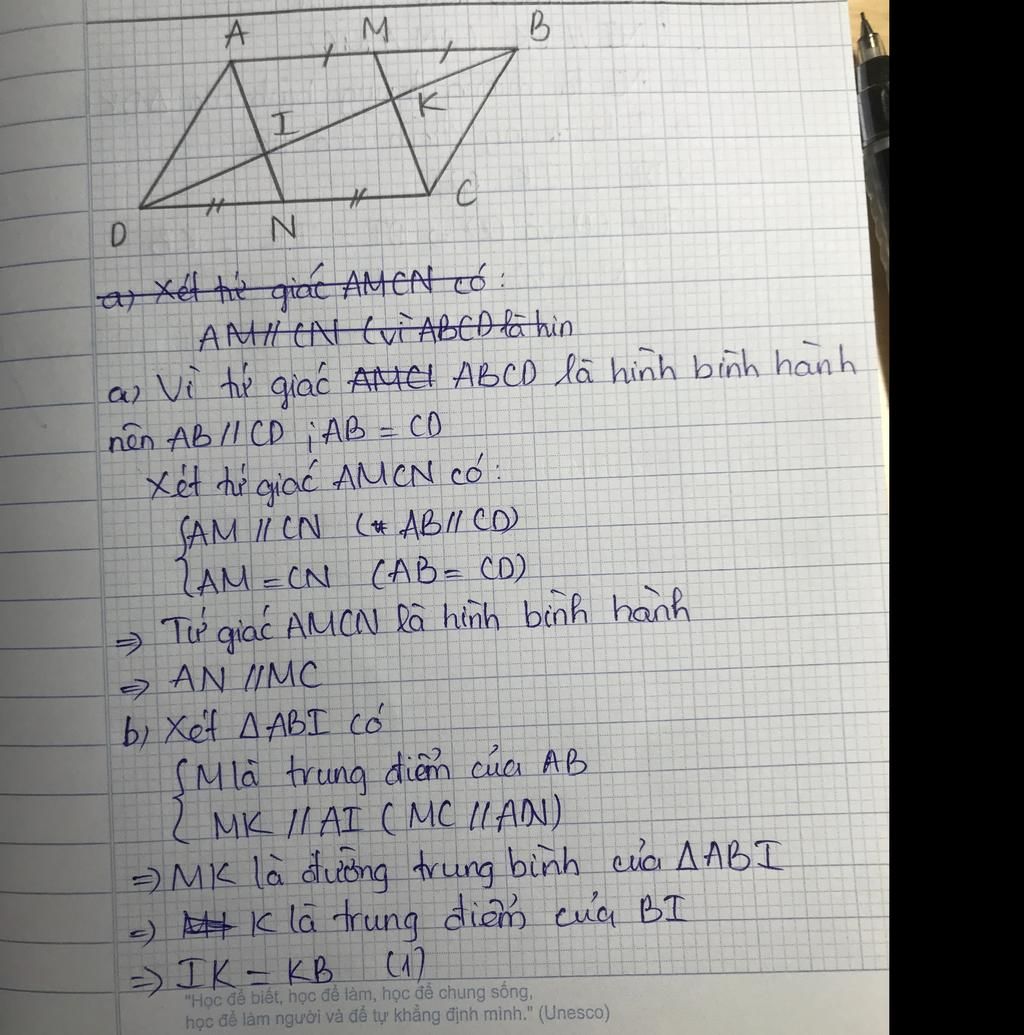 A M B
I K
D N C
a) Xét tứ giác AMCN có:
AM // CN (vì ABCD là hìn
a) Vì tứ giác AMC ABCD là hình bình hành
nên AB // CD ; AB = CD
Xét tứ giác AMCN có:
AM // CN (AB // CD)
AM = CN (AB = CD)
=> Tứ giác AMCN là hình bình hành
=> AN // MC
b) Xét ΔABI có
M là trung điểm của AB
MK // AI (MC // AN)
=> MK là đường trung bình của ΔABI
=> K là trung điểm của BI
=> IK = KB (1)
"Học để biết, học để làm, học để chung sống,
học để làm người và để tự khẳng định mình." (Unesco)